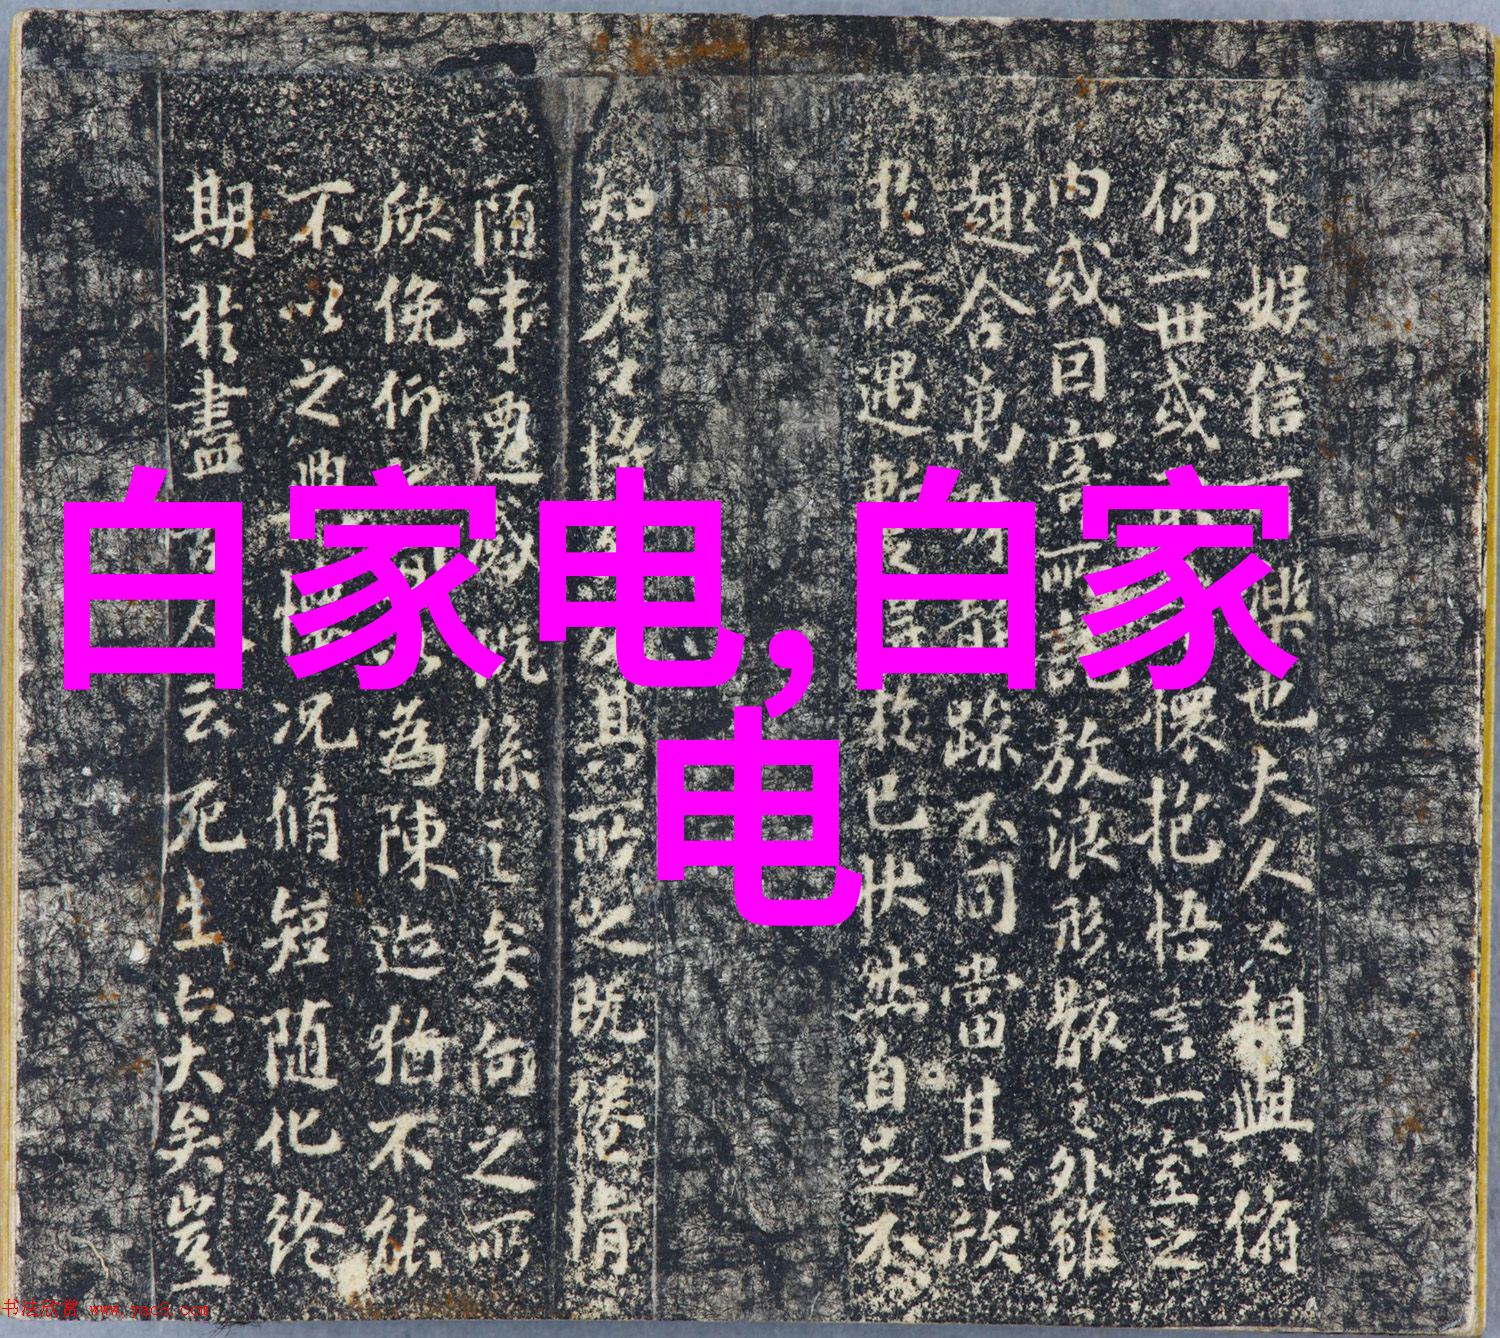 白家电,白家
电
之娱信樂也夫人之相與俯
仰一世或懷抱悟言一室之
内或因寄所託放浪形骸之外雖
趣舍萬殊躁不同當其欣
於所遇暫得於己快然自足不
知老之將其所之既倦情
随事遷感慨係之矣向之所
欣俛仰之間以為陳迹猶不能
不以之興懷况脩短随化終
期於盡古人云死生亦大矣豈
书法欣赏 www.yac8.com